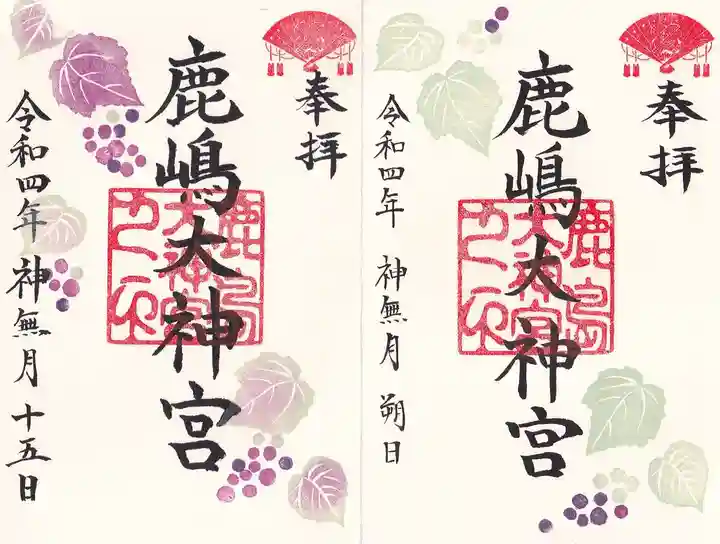 奉拝
鹿嶋大神宮
令和四年 神無月 十五日
奉拝
鹿嶋大神宮
令和四年 神無月 朔日